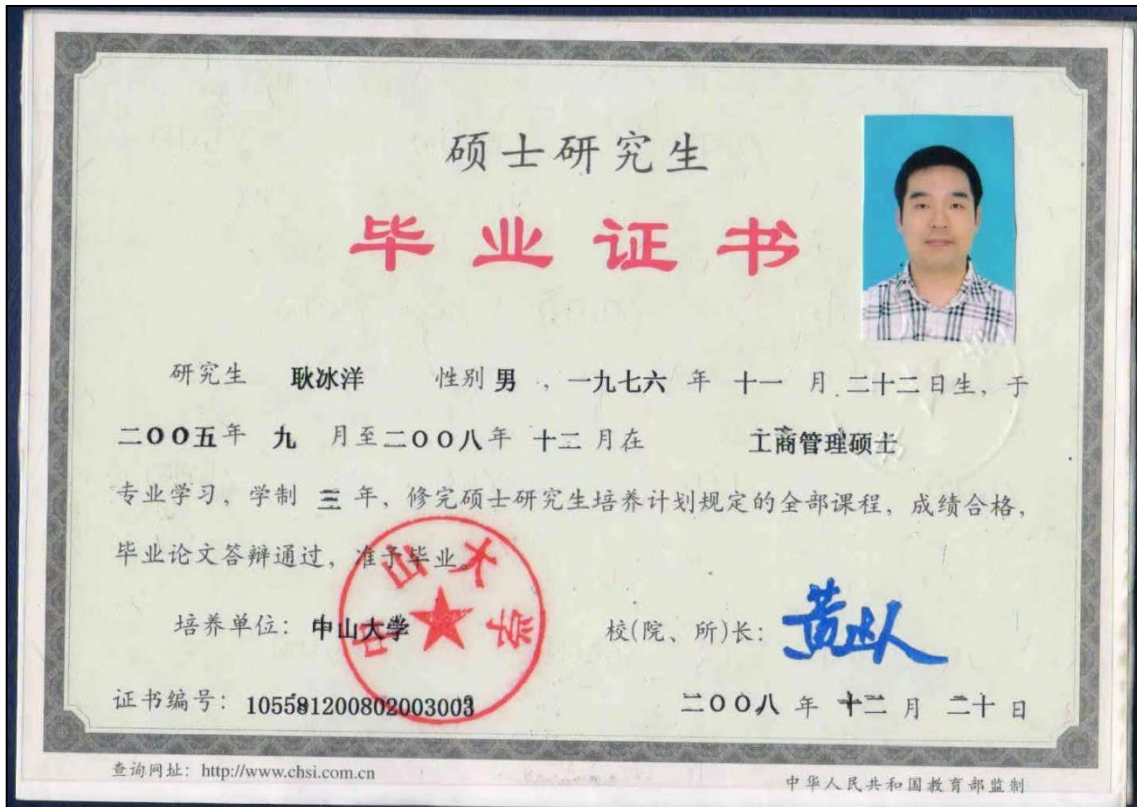 硕士研究生
毕业证书
研究生 耿冰洋 性别 男 ，一九七六 年 十一 月 二十二日生，于
二〇〇五年 九 月至二〇〇八年 十二月在 工商管理硕士
专业学习，学制 三 年，修完硕士研究生培养计划规定的全部课程，成绩合格，
毕业论文答辩通过，准予毕业。
培养单位：中山大学
中山大学
校(院、所)长：黄达人
证书编号：105581200802003003
二〇〇八 年 十二 月 二十 日
查询网址：http://www.chsi.com.cn
中华人民共和国教育部监制